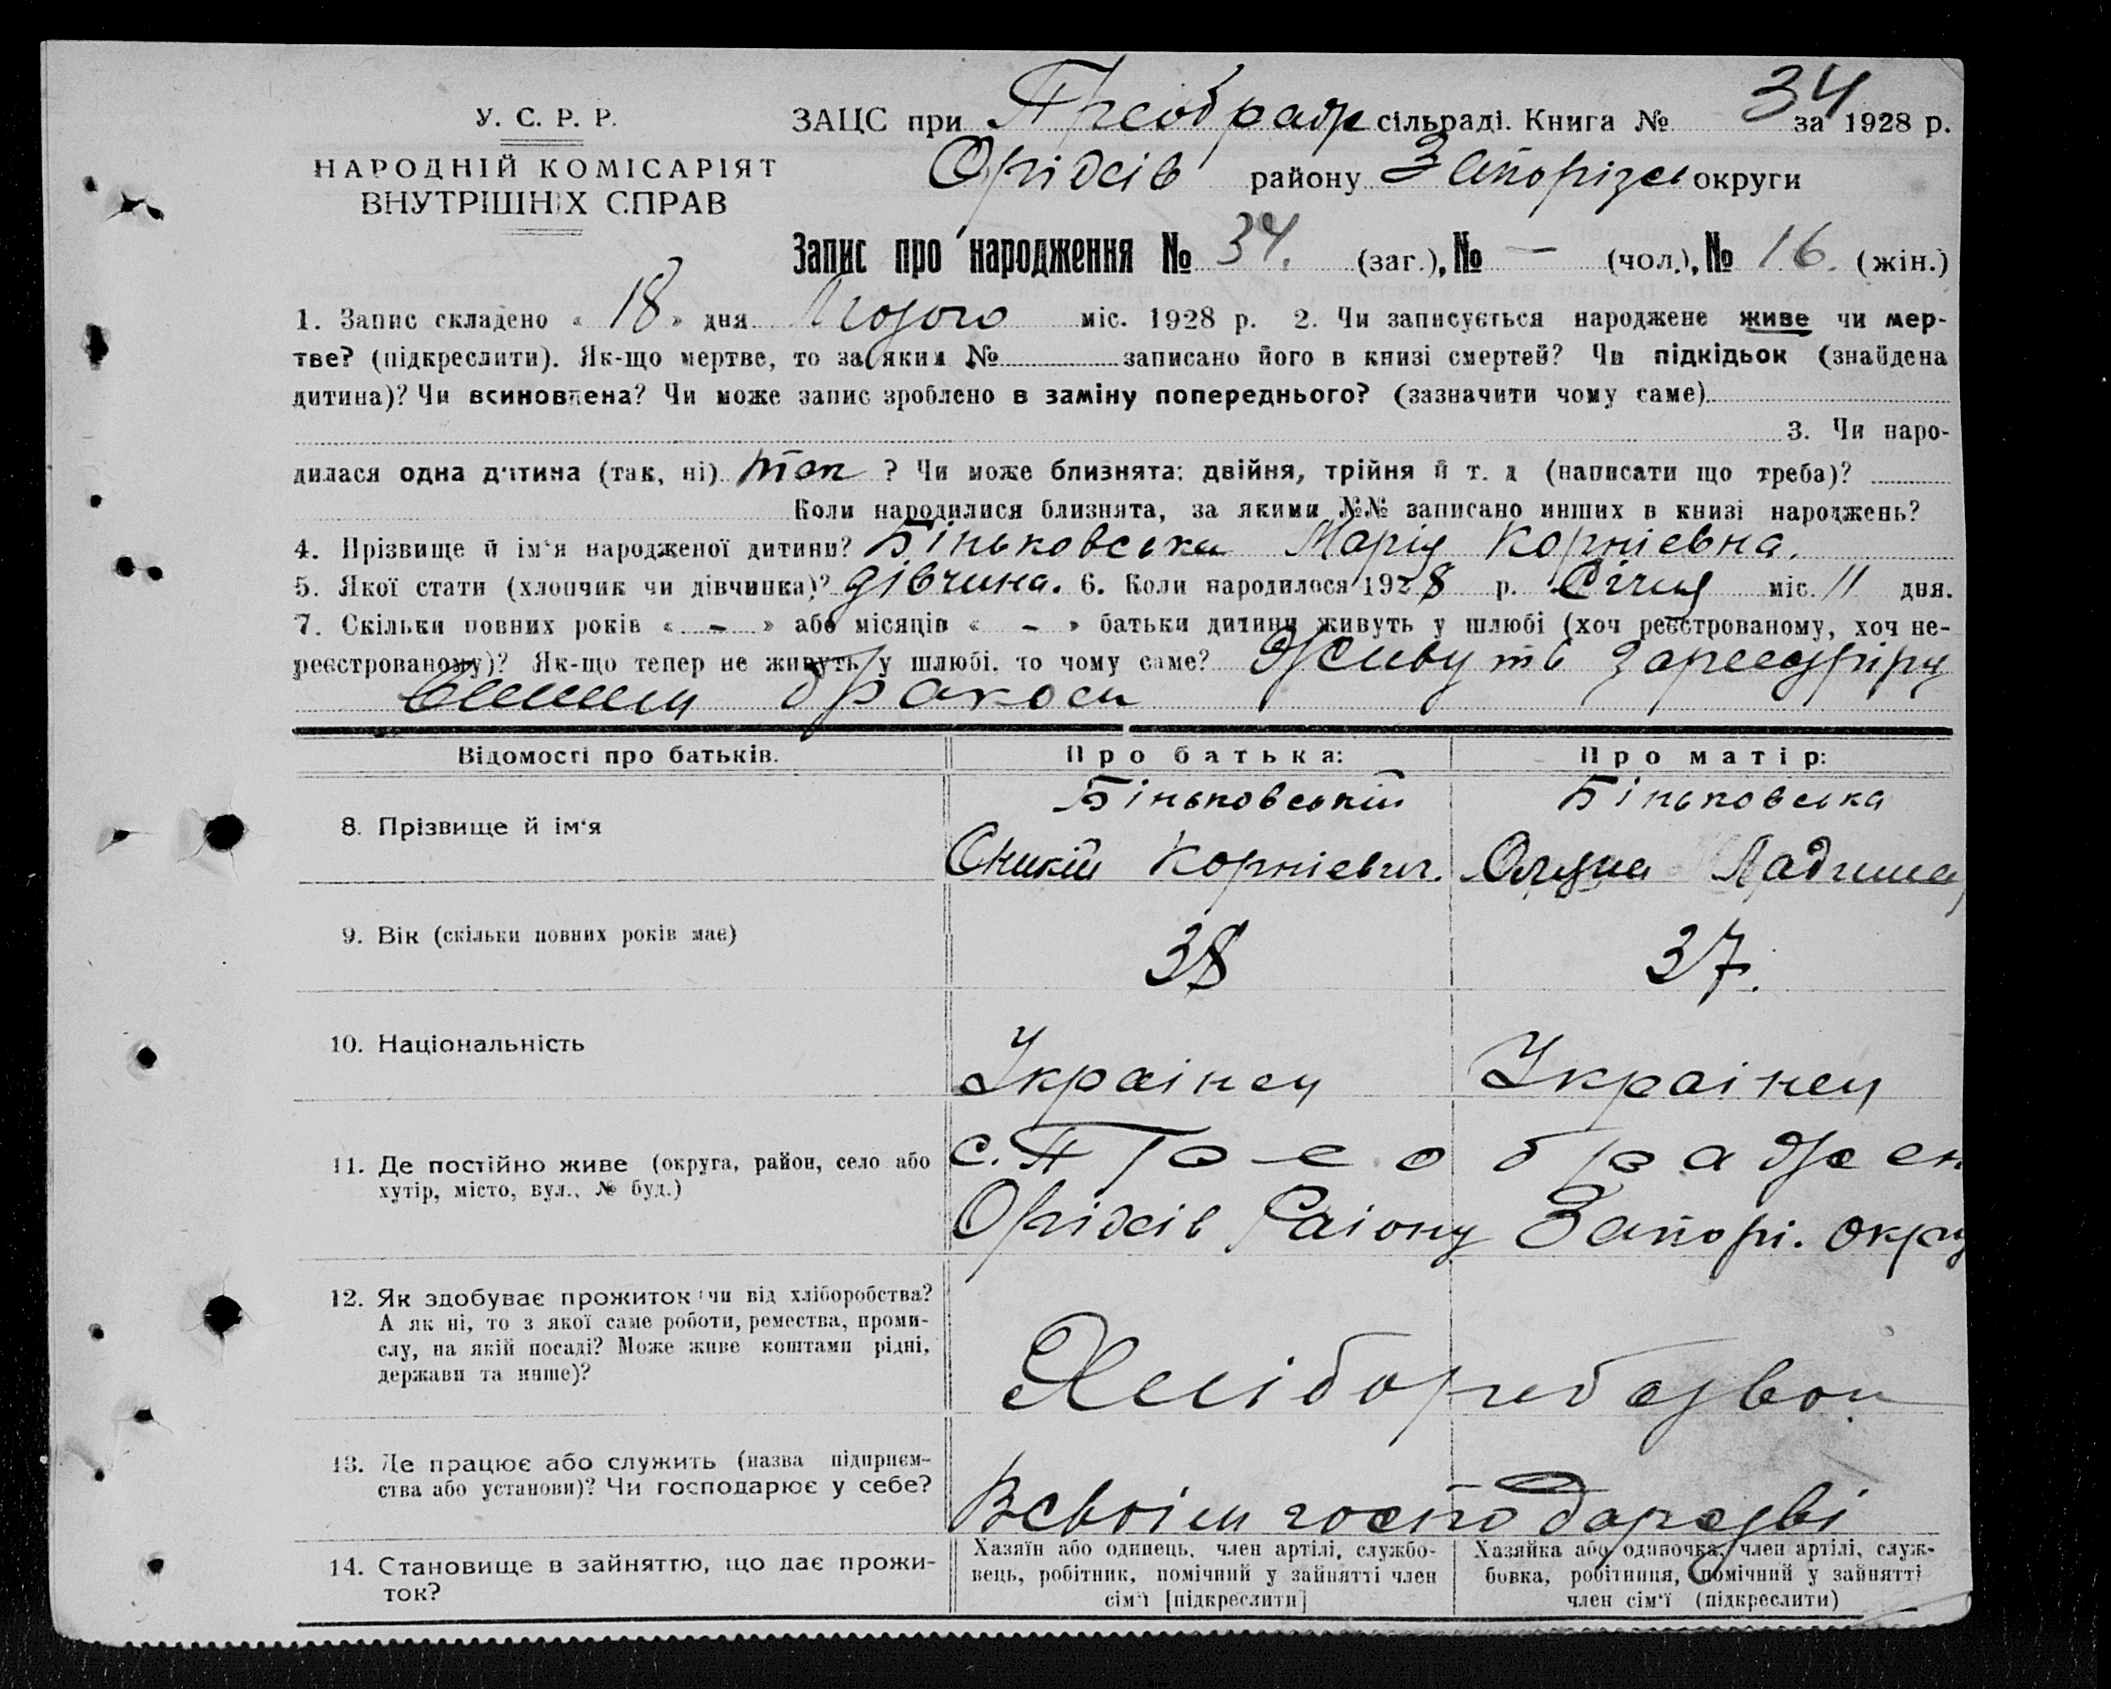 У. С. Р. Р.
НАРОДНІЙ КОМІСАРІЯТ
ВНУТРІШНІХ СПРАВ
ЗАЦС при Преображ сільраді. Книга № 34 за 1928 р.
Оріхів району Запорізьк округи
Запис про народження № 34. (заг.), № — (чол.), № 16. (жін.)
1. Запис складено « 18 » дня Лютого міс. 1928 р. 2. Чи записується народжене живе чи мер-
тве? (підкреслити). Як-що мертве, то за яким № записано його в книзі смертей? Чи підкідьок (знайдена
дитина)? Чи всиновлена? Чи може запис зроблено в заміну попереднього? (зазначити чому саме)
3. Чи наро-
дилася одна дитина (так, ні) так ? Чи може близнята: двійня, трійня й т. д (написати що треба)?
Коли народилися близнята, за якими №№ записано инших в книзі народжень?
4. Прізвище й ім'я народженої дитини? Біньковська Марія Корніевна.
5. Якої стати (хлопчик чи дівчинка)? дівчина. 6. Коли народилося 1928 р. Січня міс. 11 дня.
7. Скільки повних років « – » або місяців « – » батьки дитини живуть у шлюбі (хоч реєстрованому, хоч не-
реєстрованому)? Як-що тепер не живуть у шлюбі, то чому саме? Живуть
браком
Відомості про батьків.
Про батька:
Про матір:
8. Прізвище й ім'я
Біньковській
Корніевич.
Біньковська
9. Вік (скільки повних років має)
38
37.
10. Національність
Українец
Українец
11. Де постійно живе (округа, район, село або
хутір, місто, вул., № буд.)
с. Преображен
Оріхів Раіону Запорі. окру
12. Як здобуває прожиток: чи від хліборобства?
А як ні, то з якої саме роботи, ремества, проми-
слу, на якій посаді? Може живе коштами рідні,
держави та инше)?
Хліборобством
13. Де працює або служить (назва підприєм-
ства або установи)? Чи господарює у себе?
Всвоім господарстві
14. Становище в зайняттю, що дає прожи-
ток?
Хазяїн або одинець, член артілі, службо-
вець, робітник, помічний у зайнятті член
сім'ї [підкреслити]
Хазяйка або одиночка, член артілі, служ-
бовка, робітниця, помічний у зайнятті
член сім'ї (підкреслити)